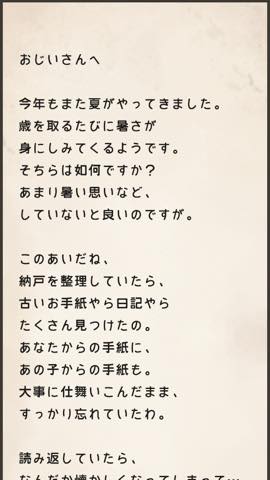 おじいさんへ
今年もまた夏がやってきました。
歳を取るたびに暑さが
身にしみてくるようです。
そちらは如何ですか？
あまり暑い思いなど、
していないと良いのですが。
このあいだね、
納戸を整理していたら、
古いお手紙やら日記やら
たくさん見つけたの。
あなたからの手紙に、
あの子からの手紙も。
大事に仕舞いこんだまま、
すっかり忘れていたわ。
読み返していたら、
なんだか懐かしくなってしまって…